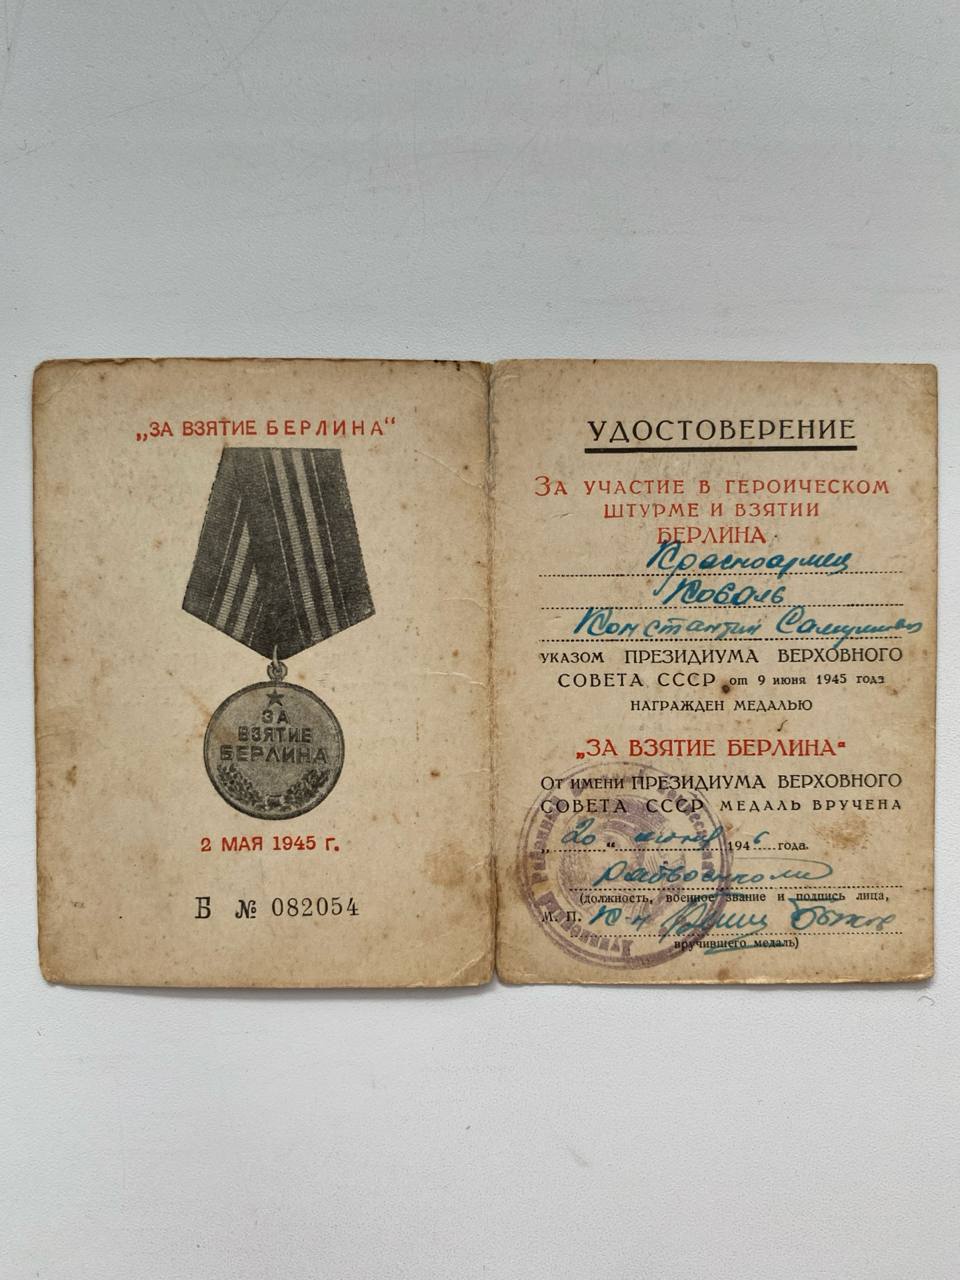 „ЗА ВЗЯТИЕ БЕРЛИНА“
ЗА
ВЗЯТИЕ
БЕРЛИНА
2 МАЯ 1945 г.
Б № 082054
УДОСТОВЕРЕНИЕ
ЗА УЧАСТИЕ В ГЕРОИЧЕСКОМ
ШТУРМЕ И ВЗЯТИИ
БЕРЛИНА
Красноармеец
Коваль
Константин Самуилович
УКАЗОМ ПРЕЗИДИУМА ВЕРХОВНОГО
СОВЕТА СССР от 9 июня 1945 года
НАГРАЖДЕН МЕДАЛЬЮ
„ЗА ВЗЯТИЕ БЕРЛИНА“
ОТ ИМЕНИ ПРЕЗИДИУМА ВЕРХОВНОГО
СОВЕТА СССР МЕДАЛЬ ВРУЧЕНА
„20“ 1946 года.
Райвоенком
(должность, военное звание и подпись лица,
М. П. К-н
вручившего медаль)